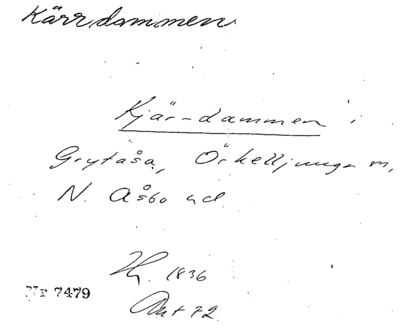 Kärrdammen
Kjär-dammen i
Grytåsa, Örkelljunga sn,
N. Åsbo hd
Hy. 1836
Akt 72
Nr 7479